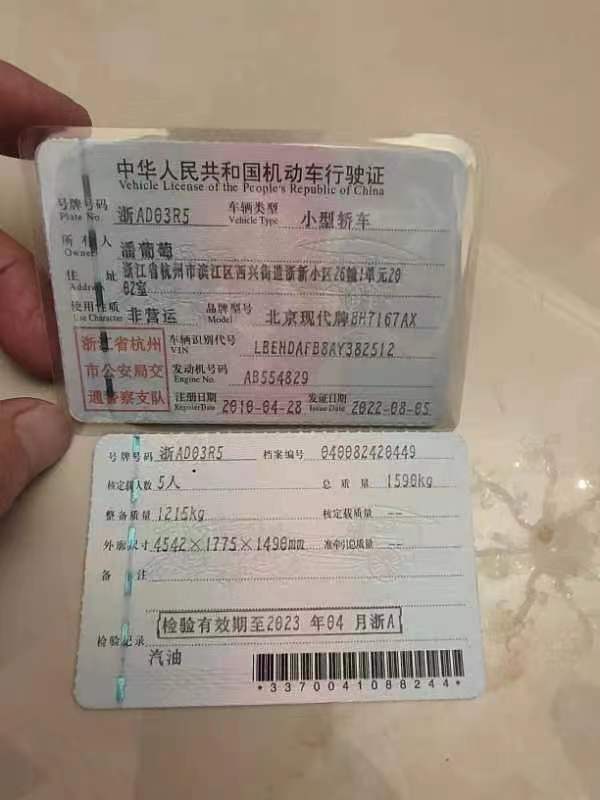 中华人民共和国机动车行驶证
Vehicle License of the People's Republic of China
号牌号码 Plate No. 浙AD03R5 车辆类型 Vehicle Type 小型轿车
所有人 Owner 潘葡萄
住址 Address 浙江省杭州市滨江区西兴街道浙新小区26幢1单元20
02室
使用性质 Use Character 非营运 品牌型号 Model 北京现代牌BH7167AX
浙江省杭州
市公安局交
通警察支队
车辆识别代号 VIN LBEHDAFB8AY382512
发动机号码 Engine No. AB554829
注册日期 Register Date 2010-04-28 发证日期 Issue Date 2022-08-05
号牌号码 浙AD03R5 档案编号 040082420449
核定载人数 5人 总质量 1590kg
整备质量 1215kg 核定载质量 --
外廓尺寸 4542×1775×1490mm 准牵引总质量 --
备注
检验有效期至2023年04月浙A
检验记录
汽油
*3370041088244*